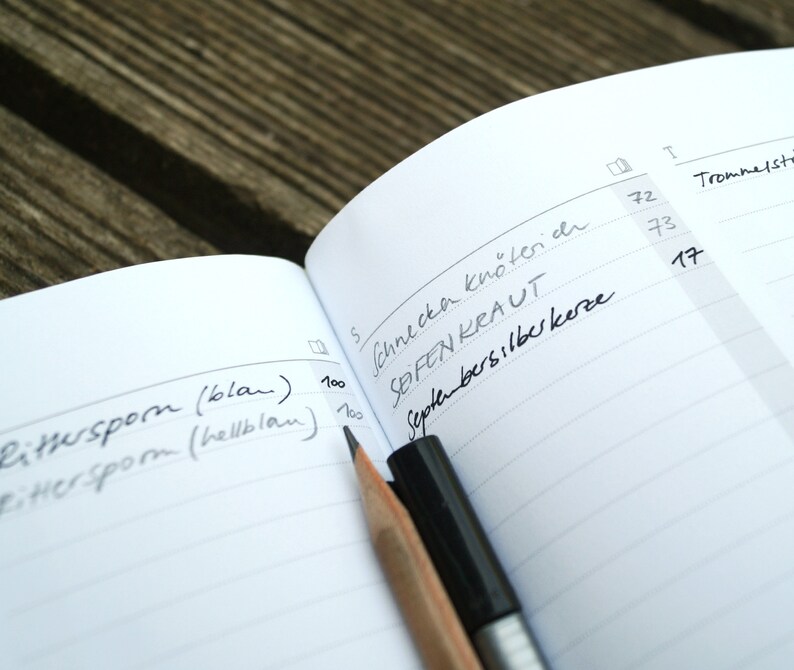 Rittersporn (blau) 100
Rittersporn (hellblau) 100
S
Schneckenknöterich 72
SEIFENKRAUT 73
Septembersilberkerze 17
T
Trommelst